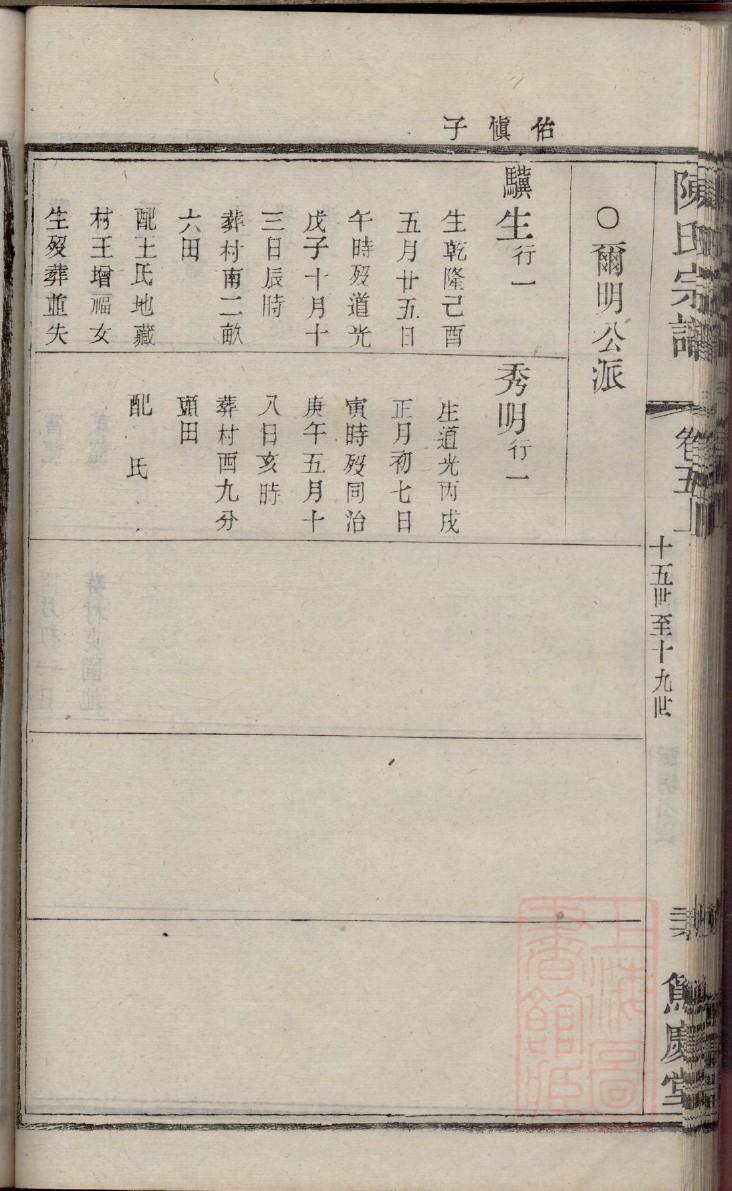 陳氏宗譜
卷五
十五世至十九世
慶堂
佑愼子
○爾明公派
驥生行一
生乾隆己酉
五月廿五日
午時歿道光
戊子十月十
三日辰時
葬村南二畝
六田
配王氏地藏
村王增福女
生歿葬並失
秀明行一
生道光丙戌
正月初七日
寅時歿同治
庚午五月十
八日亥時
葬村西九分
頭田
配 氏
上海圖
書館藏